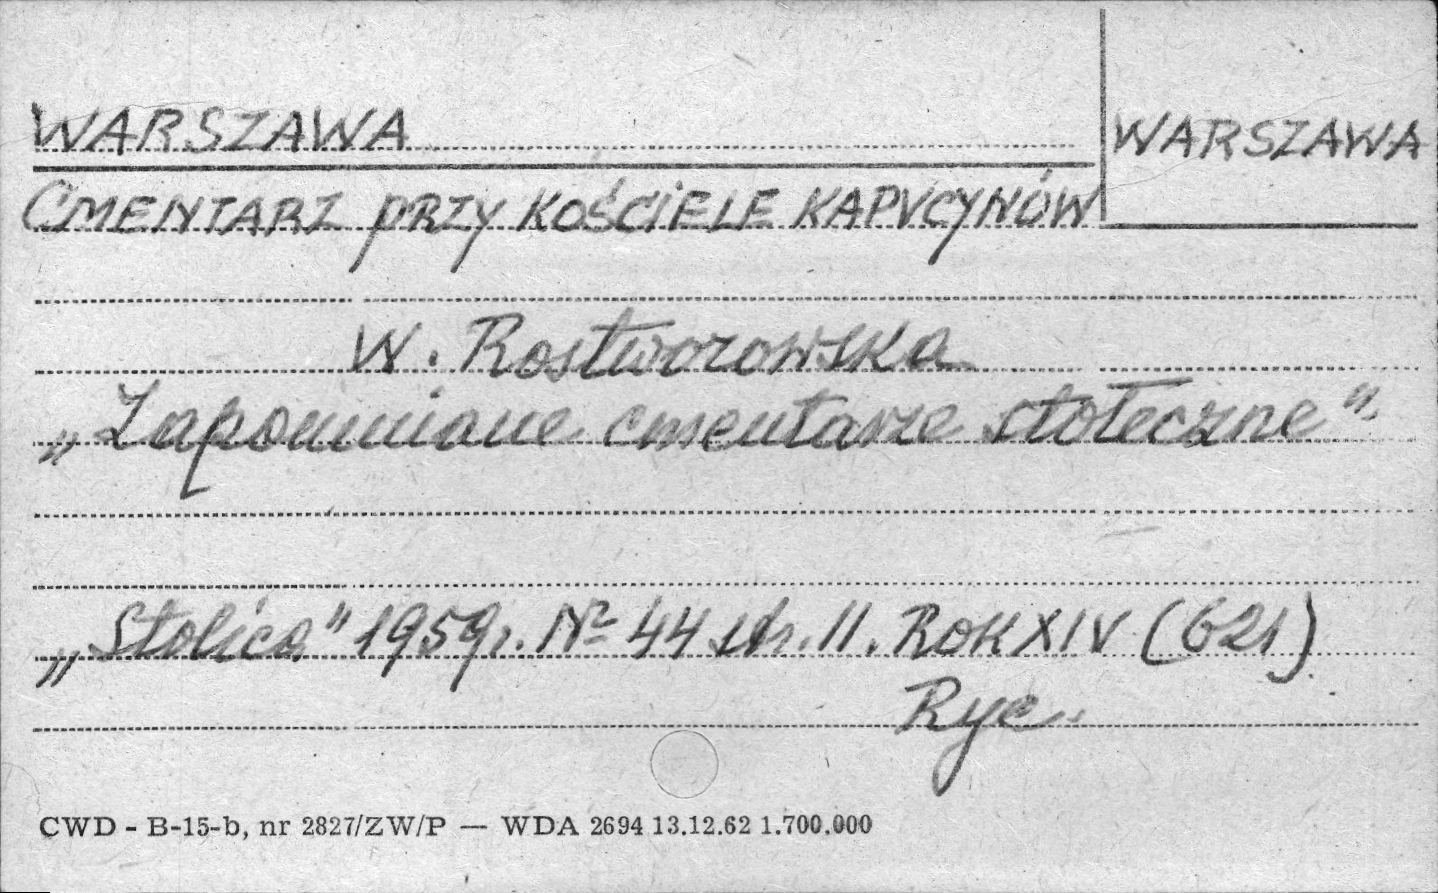 WARSZAWA
WARSZAWA
CMENTARZ PRZY KOŚCIELE KAPUCYNÓW
W. Rostworowska
„Zapomniane cmentarze stołeczne”
„Stolica” 1959r. Nº 44 str. 11. ROK XIV (621)
Ryc.
CWD - B-15-b, nr 2827/ZW/P — WDA 2694 13.12.62 1.700.000